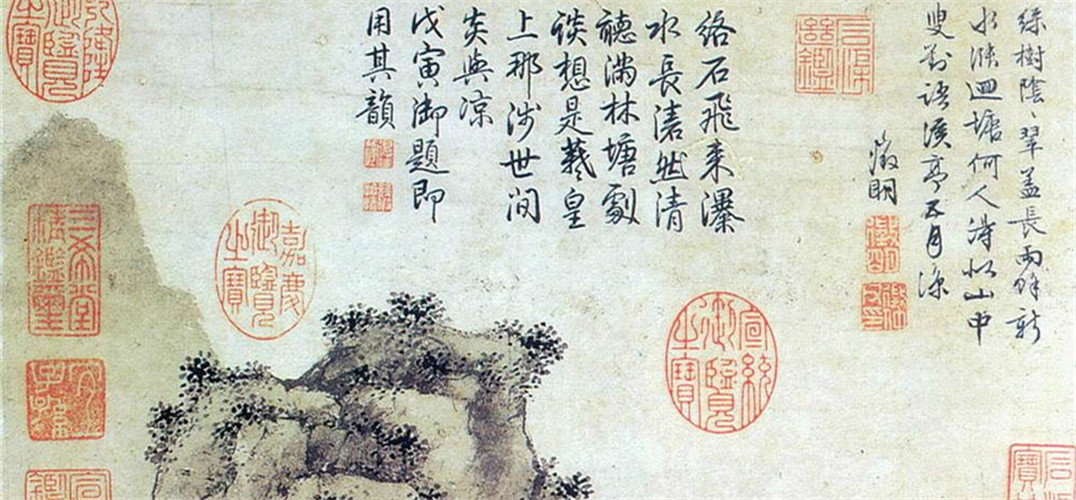 綠樹陰〻翠蓋長雨餘新
水漲迴塘何人得似山中
叟對語溪亭五月涼
徵明
絡石飛來瀑
水長然清
聽滿林塘劇
談想是羲皇
上那涉世間
炎與涼
戊寅御題即
用其韻
宣統御覽之寶
嘉慶御覽之寶
乾隆御覽之寶
三希堂精鑑璽
宜子孫